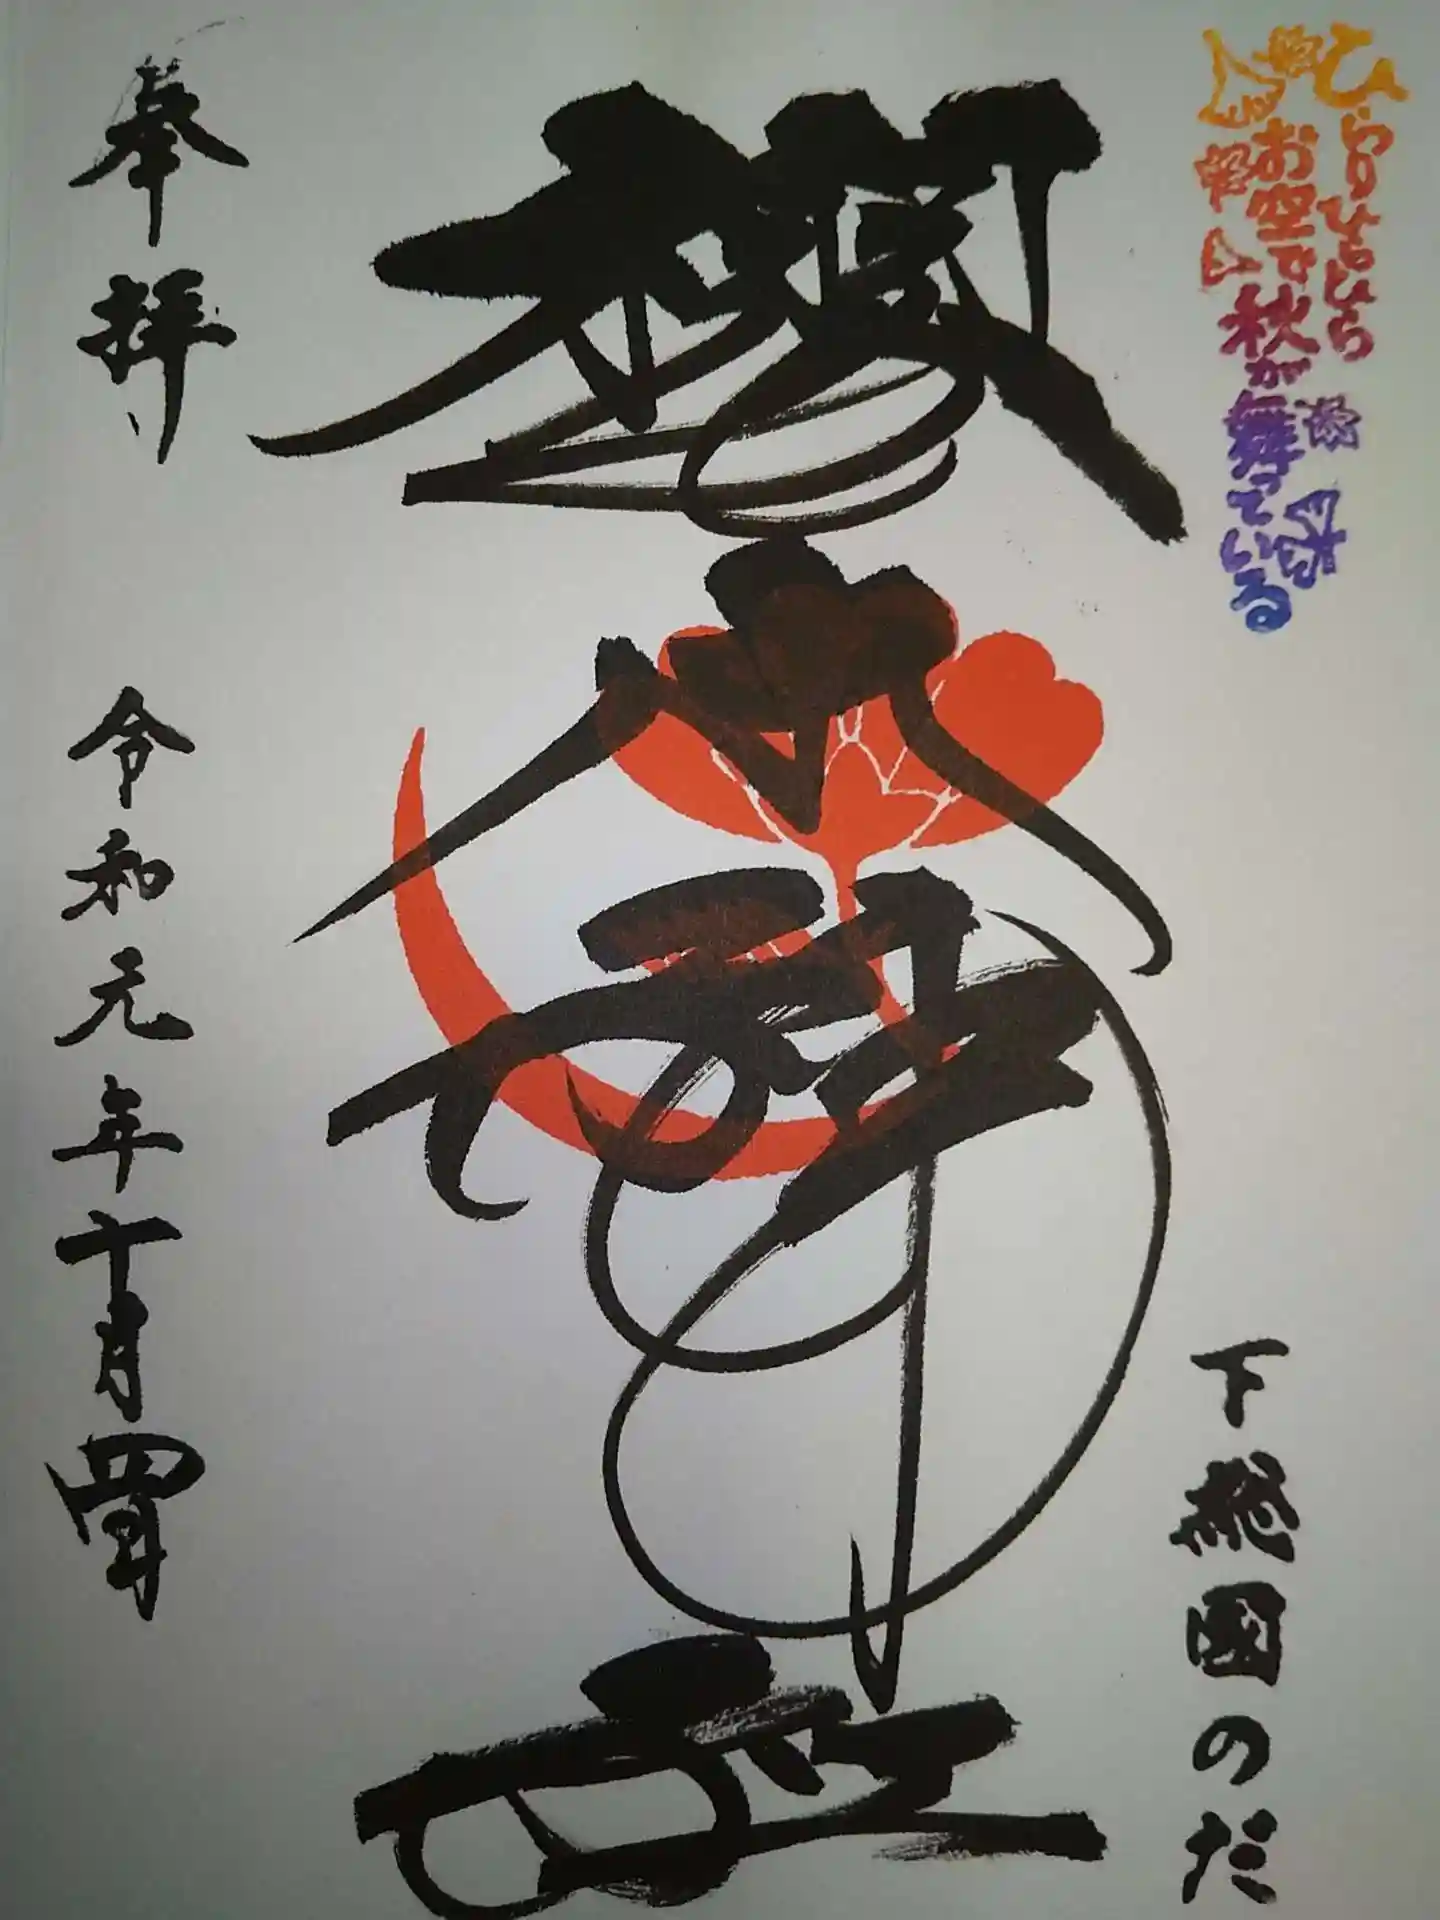 ひらりひらひら
お空で秋が舞っている
下総國のだ
櫻木神社
奉拝
令和元年十月